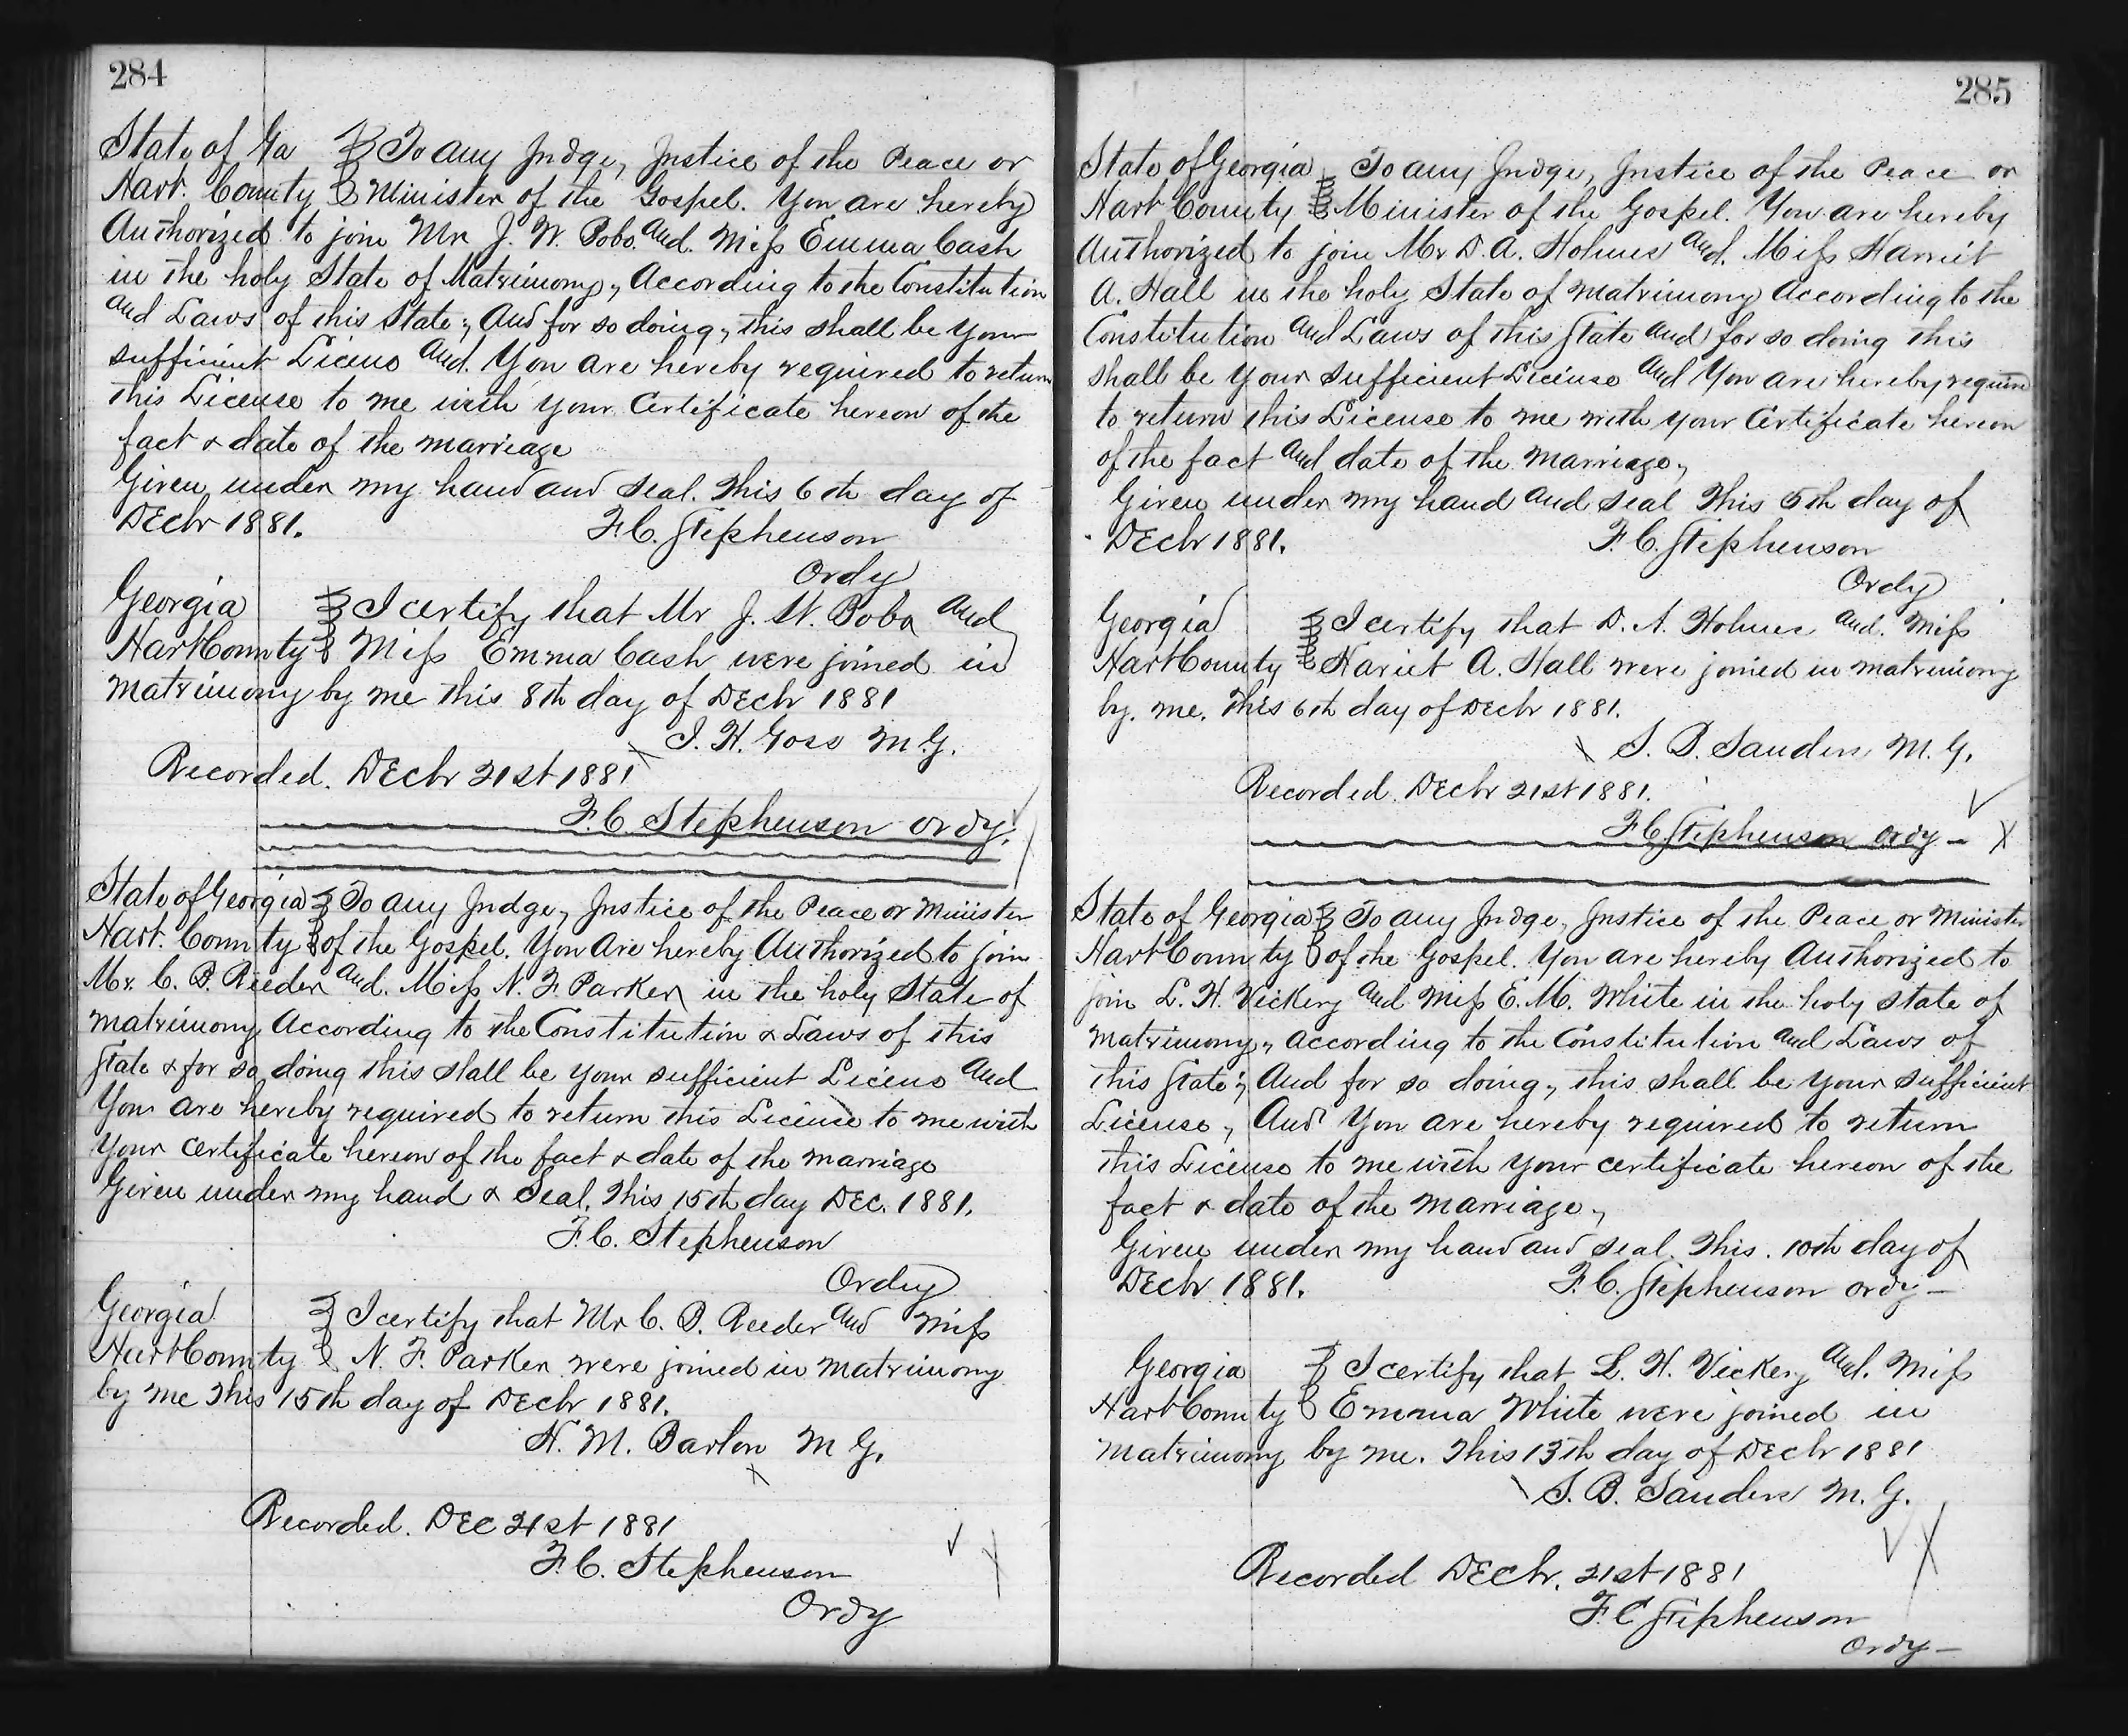 284
State of Ga To any Judge, Justice of the Peace or
Hart. County Minister of the Gospel. You are hereby
Authorized to join Mr J. W. Bobo and. Miss Emma Cash
in the holy State of Matrimony, According to the Constitution
and Laws of this State; And for so doing, this shall be your
sufficient Licens and. You are hereby required to return
this License to me with your Certificate hereon of the
fact & date of the marriage
Given under my hand and seal. This 6th day of
Decbr 1881. F. C. Stephenson
Ordy
Georgia I certify that Mr J. W. Bobo and
Hart County Miss Emma Cash were joined in
matrimony by me this 8th day of Decbr 1881
I. H. Goss M.G.
Recorded. Decbr 21st 1881
F. C. Stephenson Ordy.
State of Georgia To any Judge, Justice of the Peace or Minister
Hart. County of the Gospel. You Are hereby Authorized to join
Mr. C. B. Reeder and. Miss N. F. Parker in the holy State of
matrimony According to the Constitution & Laws of this
State & for so doing this shall be your sufficient Licens and
You are hereby required to return this License to me with
Your certificate hereon of the fact & date of the marriage
Given under my hand & Seal. This 15th day Dec. 1881.
F. C. Stephenson
Ordy
Georgia I certify that Mr C. B. Reeder and Miss
Hart County N. F. Parker were joined in matrimony
by me This 15th day of Decbr 1881.
H. M. Barton M G.
Recorded. Dec 21st 1881
F. C. Stephenson
Ordy
285
State of Georgia To any Judge, Justice of the Peace or
Hart County Minister of the Gospel. You are hereby
Authorized to join Mr D. A. Holmes and. Miss Harriet
A. Hall in the holy State of matrimony According to the
Constitution and Laws of this State and for so doing this
shall be your sufficient License and You are hereby required
to return this License to me with your Certificate hereon
of the fact and date of the marriage,
Given under my hand and seal This 5th day of
Decbr 1881. F. C. Stephenson
Ordy
Georgia I certify that D. A. Holmes and. Miss
Hart County Hariet A. Hall were joined in matrimony
by. me. This 6th day of Decbr 1881.
S. B. Sanders M. G.
Recorded. Decbr 21st 1881.
F. C. Stephenson Ordy
State of Georgia To any Judge, Justice of the Peace or Minister
Hart County of the Gospel. You are hereby Authorized to
join L. H. Vickery and Miss E. M. White in the holy state of
matrimony, according to the Constitution and Laws of
this State; And for so doing, this shall be your sufficient
License, And You are hereby required to return
this License to me with your certificate hereon of the
fact & date of the marriage,
Given under my hand and seal. This. 10th day of
Decbr 1881. F. C. Stephenson Ordy
Georgia I certify that L. H. Vickery and. Miss
Hart County Emma White were joined in
matrimony by me. This 13th day of Decbr 1881
S. B. Sanders M. G.
Recorded Decbr. 21st 1881
F. C Stephenson
Ordy